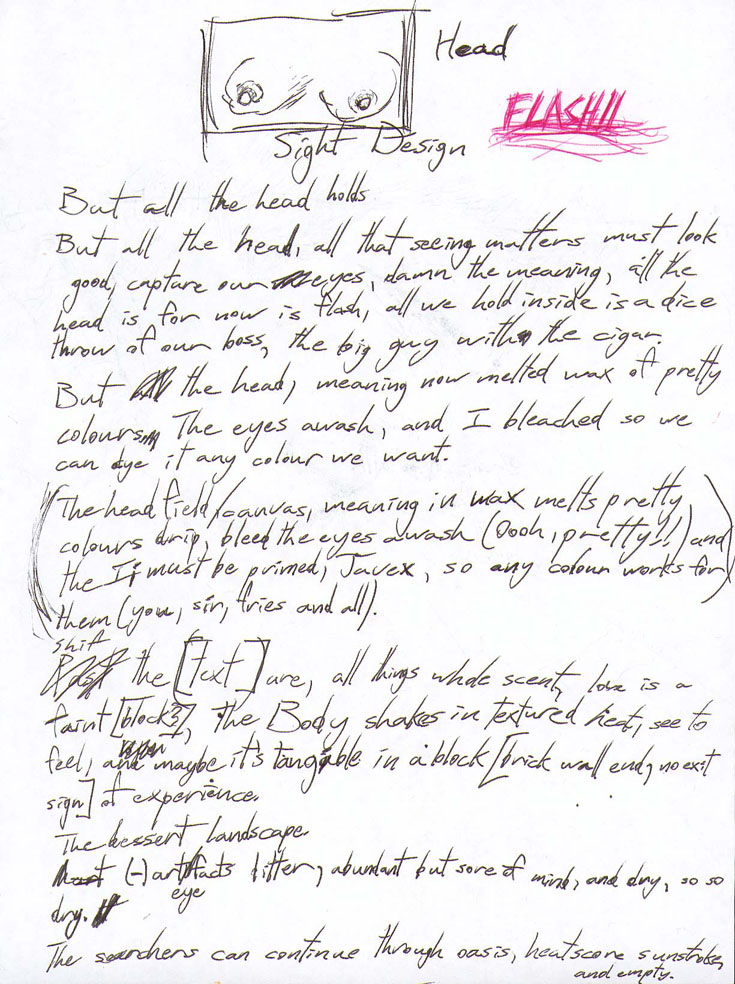 Head
FLASH!!
Sight Design
But all the head holds
But all the head, all that seeing matters must look
good, capture our eyes, damn the meaning, all the
head is for now is flash, all we hold inside is a dice
throw of our boss, the big guy with the cigar.
But the head, meaning now melted wax of pretty
colours. The eyes awash, and I bleached so we
can dye it any colour we want.
(The head field/canvas, meaning in wax melts pretty
colours drip, bleed the eyes awash (Oooh, pretty!!) and
the I must be primed, Javex, so any colour works for
them (you, sir, fries and all).
shift
the [Text]ure, all things whole scent, love is a
faint [block?], the Body shakes in textured heat, see to
feel, and maybe it's tangible in a block [brick wall end, no exit
sign] of experience.
The dessert landscape.
(-) artifacts litter, abundant but sore of mind, and dry, so so
eye
dry.
The searchers can continue through oasis, heatscore sunstroke,
and empty.